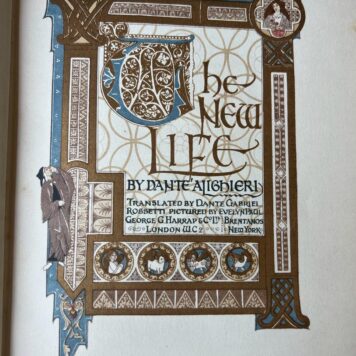 The
New
Life
BY DANTE ALIGHIERI
TRANSLATED BY DANTE GABRIEL
ROSSETTI PICTURED BY EVELYN PAUL
GEORGE G HARRAP & Co LTD BRENTANOS
LONDON W.C2 NEW YORK